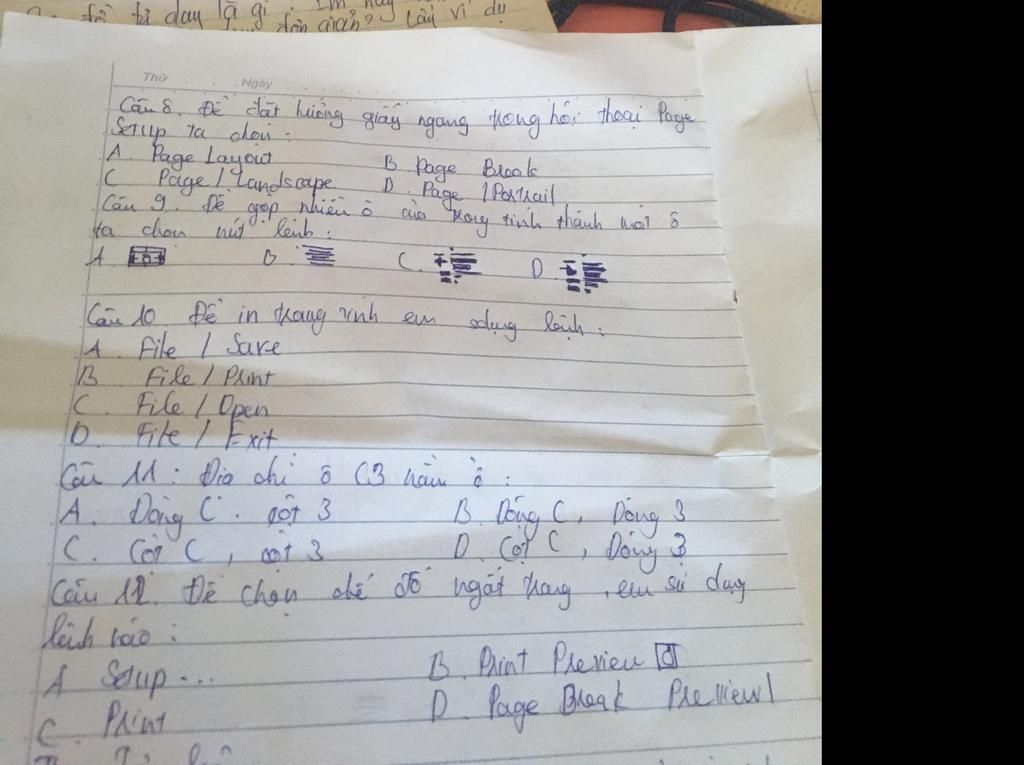 tả day là gì
đơn giản? Lấy ví dụ
Thứ Ngày
Câu 8. Để đặt hướng giấy ngang trong hôi thoại Page
Setup ta chọn:
A. Page Layout B Page Break
C Page / Landscape D. Page / Portrail
Câu 9. Để gộp nhiều ô của trang tính thành một ô
ta chọn nút lệnh:
A B. C. D
Câu 10 Để in trang tính em sdụng lệnh:
A. File / Save
B File / Print
C. File / Open
D. File / Exit
Câu 11: Địa chỉ ô C3 nằm ở:
A. Dòng C. cột 3 B. Dòng C, Dòng 3
C. Cột C, cột 3 D. Cột C, Dòng 3
Câu 12. Để chọn chế độ ngắt trang, em sử dụng
lệnh nào:
A Setup... B. Print Preview
C. Print D. Page Break Preview